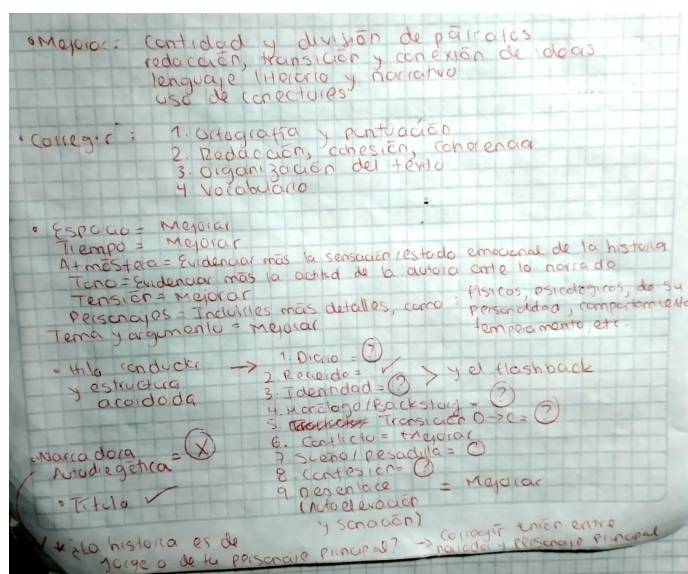 • Mejorar: Cantidad y división de párrafos
redacción, transición y conexión de ideas
lenguaje literario y narrativo
uso de conectores
• Corregir: 1. Ortografía y puntuación
2. Redacción, cohesión, coherencia
3. Organización del texto
4. Vocabulario
• Espacio = Mejorar
Tiempo = Mejorar
Atmósfera = Evidenciar más la sensación/estado emocional de la historia
Tono = Evidenciar más la actitud de la autora ante lo narrado
Tensión = Mejorar
Personajes = Incluirles más detalles, como: físicos, psicológicos, de su
personalidad, comportamiento
temperamento, etc.
Tema y argumento = Mejorar
• Hilo conductor
y estructura
acordada
→ 1. Diario = ?
2. Recuerdo = ✓
3. Identidad = ? > y el flashback
4. Monólogo/Backstory = ?
5. Transición D→C = ?
6. Conflicto = Mejorar
7. Sueño/pesadilla =
8. Confesión = ?
9. Desenlace = Mejorar
(Autoelevación
y sanación)
• Narradora
Autodiegética = X
• Título ✓
* ¿La historia es de
Jorge o de tu personaje principal? → Corregir unión entre
narrador y personaje principal